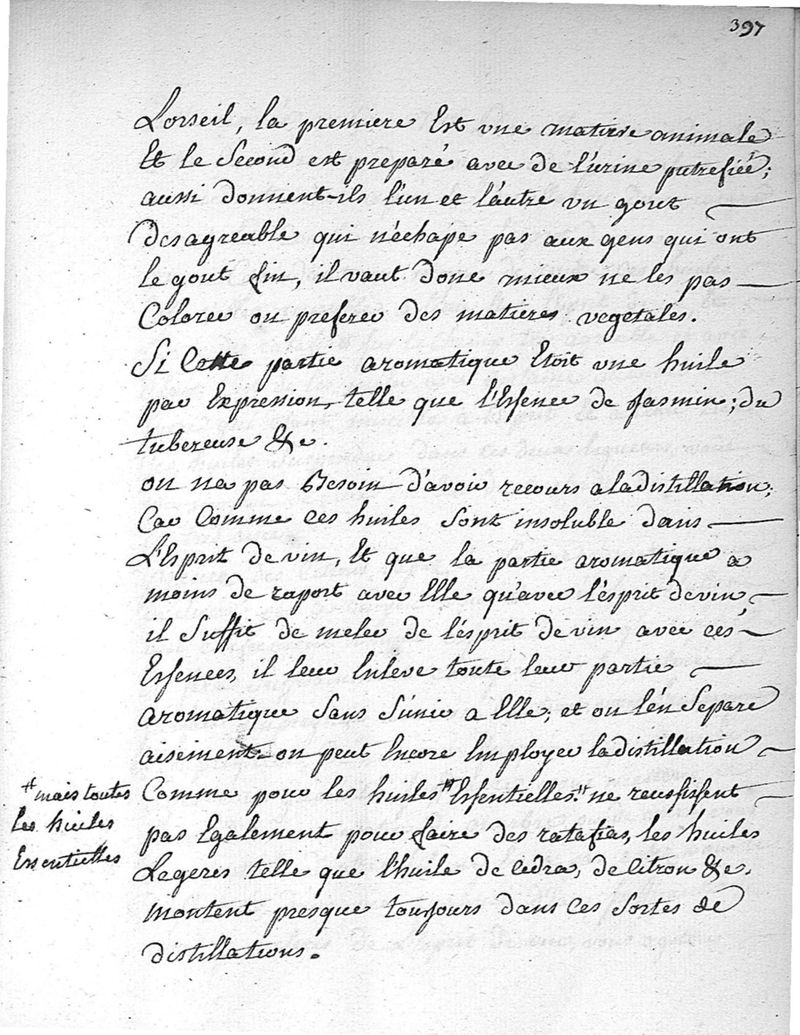 397
L'orseil, la premiere Est une matiere animale
Et le Second est preparé avec de l'urine putrefiée;
aussi donnent-ils l'un et l'autre un gout
desagreable qui n'échape pas aux gens qui ont
le gout fin, il vaut donc mieux ne les pas
Colorer ou preferer des matieres vegetales.
Si Cette partie aromatique Etoit une huile
par Expression, telle que l'Essence de Jasmin; du
tubereuse &c.
on na pas Besoin d'avoir recours a la distillation;
Car Comme ces huiles Sont insoluble dans
L'Esprit de vin, Et que la partie aromatique a
moins de raport avec Elle qu'avec l'esprit de vin,
il Suffit de meler de l'ésprit de vin avec ces
Essences, il leur Enleve toute leur partie
aromatique Sans S'unir a Elle; et on l'én Separe
aisement. on peut Encore Employer la distillation
Comme pour les huiles Essentielles.# ne reussissent
#mais toutes
les huiles
Essentielles
pas Egalement pour faire des ratafias, les huiles
Legeres telle que l'huile de Cedra, de Citron &c.
montent presque toujours dans Ces Sortes de
distillations.